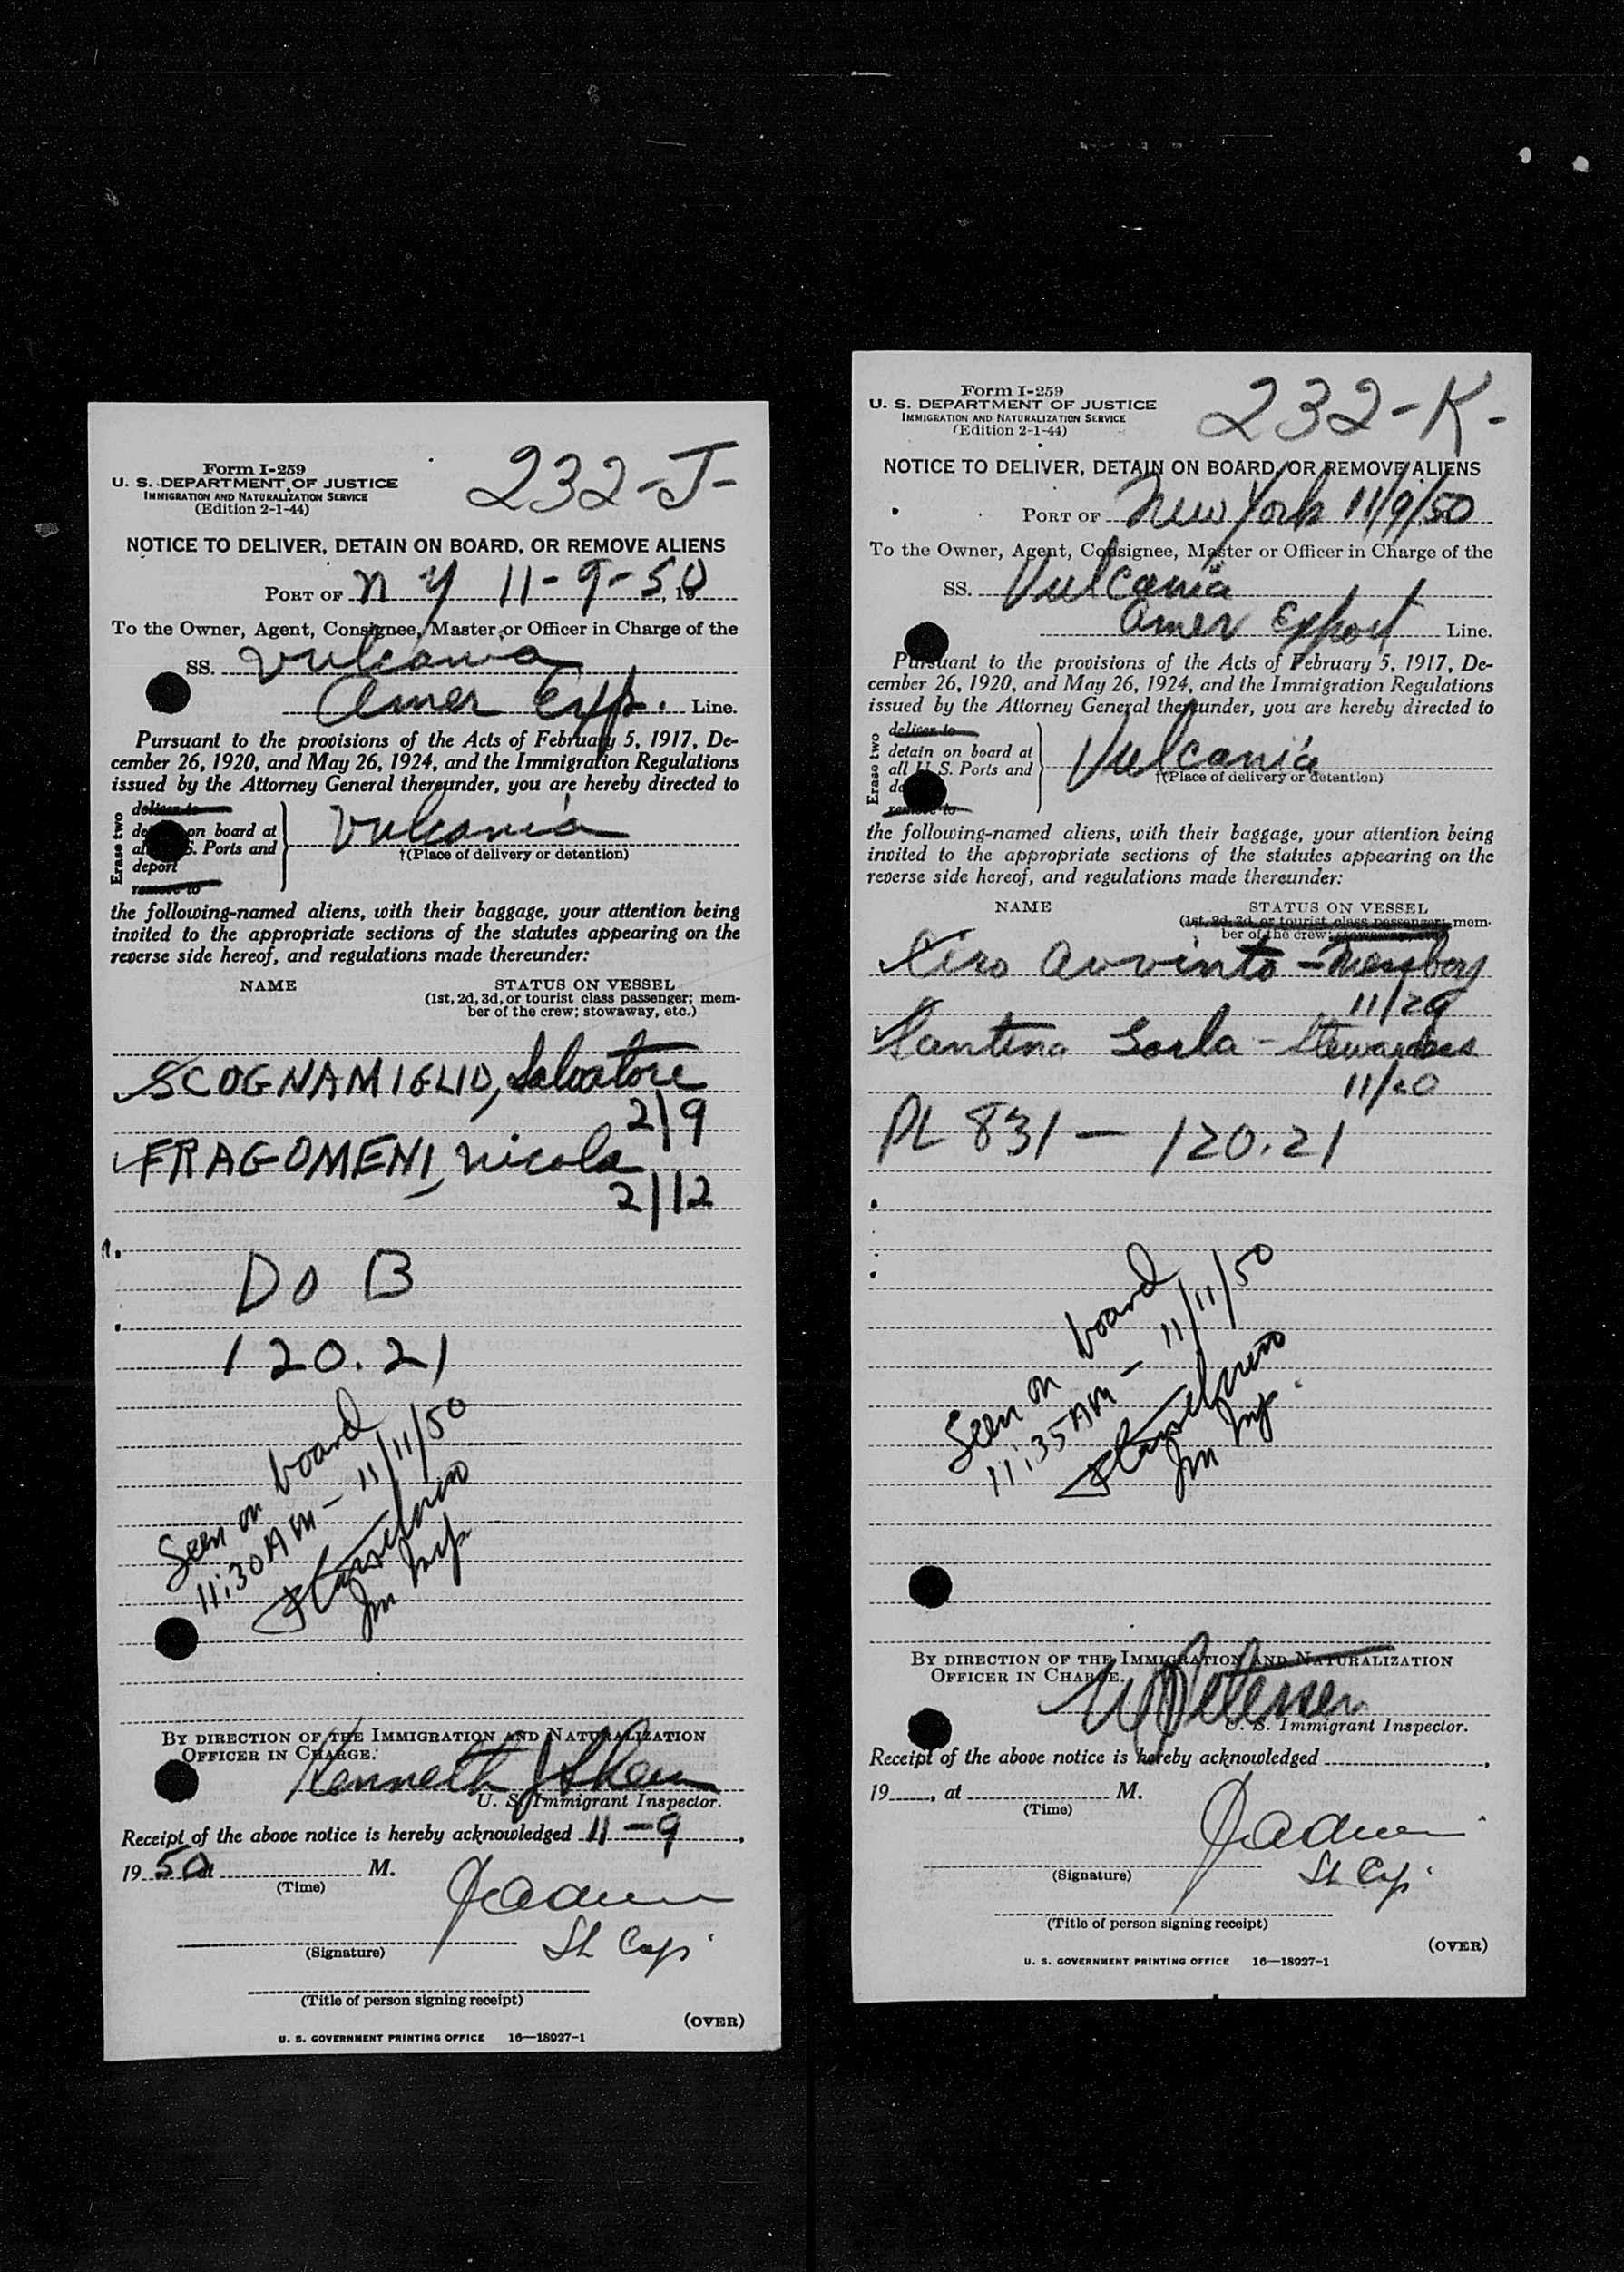 Form I-259
U. S. DEPARTMENT OF JUSTICE
IMMIGRATION AND NATURALIZATION SERVICE
(Edition 2-1-44)
232-J-
NOTICE TO DELIVER, DETAIN ON BOARD, OR REMOVE ALIENS
PORT OF N Y 11-9-50, 19
To the Owner, Agent, Consignee, Master or Officer in Charge of the
SS. Vulcania
Amer Exp. Line.
Pursuant to the provisions of the Acts of February 5, 1917, De-
cember 26, 1920, and May 26, 1924, and the Immigration Regulations
issued by the Attorney General thereunder, you are hereby directed to
Erase two
deliver to
de on board at
al S. Ports and
deport
remove to
Vulcania
†(Place of delivery or detention)
the following-named aliens, with their baggage, your attention being
invited to the appropriate sections of the statutes appearing on the
reverse side hereof, and regulations made thereunder:
NAME STATUS ON VESSEL
(1st, 2d, 3d, or tourist class passenger; mem-
ber of the crew; stowaway, etc.)
SCOGNAMIGLIO, Salvatore
2/9
FRAGOMENI, Nicola
2/12
Do B
120.21
Seen on board
11:30 AM - 11/11/50
Im Insp
BY DIRECTION OF THE IMMIGRATION AND NATURALIZATION
OFFICER IN CHARGE.
Kenneth J Shea
U. S. Immigrant Inspector.
Receipt of the above notice is hereby acknowledged 11-9,
19 50 at M.
(Time)
(Signature)
(Title of person signing receipt)
(OVER)
U. S. GOVERNMENT PRINTING OFFICE 16—18927-1
Form I-259
U. S. DEPARTMENT OF JUSTICE
IMMIGRATION AND NATURALIZATION SERVICE
(Edition 2-1-44)
232-K-
NOTICE TO DELIVER, DETAIN ON BOARD, OR REMOVE ALIENS
PORT OF New York 11/9/50
To the Owner, Agent, Consignee, Master or Officer in Charge of the
SS. Vulcania
Amer Export Line.
Pursuant to the provisions of the Acts of February 5, 1917, De-
cember 26, 1920, and May 26, 1924, and the Immigration Regulations
issued by the Attorney General thereunder, you are hereby directed to
Erase two
deliver to
detain on board at
all U. S. Ports and
de
remove to
Vulcania
†(Place of delivery or detention)
the following-named aliens, with their baggage, your attention being
invited to the appropriate sections of the statutes appearing on the
reverse side hereof, and regulations made thereunder:
NAME STATUS ON VESSEL
(1st, 2d, 3d, or tourist class passenger; mem-
ber of the crew; stowaway, etc.)
Ciro Avvinto - Messboy
11/29
Santina - Stewardess
11/20
PL 831 - 120.21
Seen on board
11:35 AM - 11/11/50
Im Insp.
BY DIRECTION OF THE IMMIGRATION AND NATURALIZATION
OFFICER IN CHARGE.
W Petersen
U. S. Immigrant Inspector.
Receipt of the above notice is hereby acknowledged ,
19 , at M.
(Time)
(Signature)
(Title of person signing receipt)
(OVER)
U. S. GOVERNMENT PRINTING OFFICE 16—18927-1